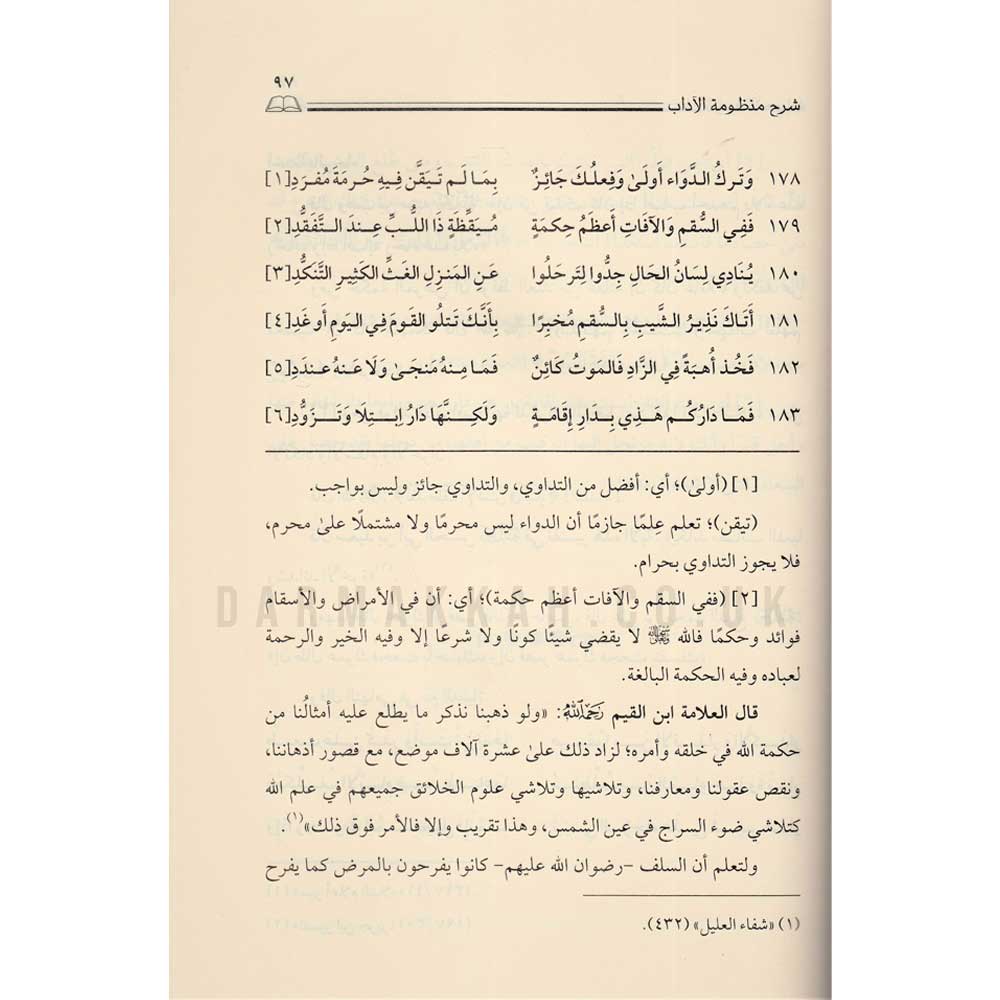 ٩٧
شرح منظومة الآداب
١٧٨ وَتَركُ الدَّوَاء أَولَىٰ وَفِعلُكَ جَائِزٌ بِمَا لَم تَيَقَّن فِيهِ حُرمَةَ مُفرَدِ[١]
١٧٩ فَفِي السُّقمِ وَالآفَاتِ أَعظَمُ حِكمَةٍ مُيَقِّظَةٍ ذَا اللُّبِّ عِندَ التَّفَقُّدِ[٢]
١٨٠ يُنَادِي لِسَانُ الحَالِ جِدُّوا لِتَرحَلُوا عَنِ المَنزِلِ الغَثِّ الكَثِيرِ التَّنَكُّدِ[٣]
١٨١ أَتَاكَ نَذِيرُ الشَّيبِ بِالسُّقمِ مُخبِرًا بِأَنَّكَ تَتلُو القَومَ فِي اليَومِ أَو غَدِ[٤]
١٨٢ فَخُذ أُهبَةً فِي الزَّادِ فَالمَوتُ كَائِنٌ فَمَا مِنهُ مَنجَىٰ وَلَا عَنهُ عِندَدِ[٥]
١٨٣ فَمَا دَارُكُم هَذِي بِدَارِ إِقَامَةٍ وَلَكِنَّهَا دَارُ اِبتِلَا وَتَزَوُّدِ[٦]
[١] (أولىٰ)؛ أي: أفضل من التداوي، والتداوي جائز وليس بواجب.
(تيقن)؛ تعلم عِلمًا جازمًا أن الدواء ليس محرمًا ولا مشتملًا علىٰ محرم،
فلا يجوز التداوي بحرام.
[٢] (ففي السقم والآفات أعظم حكمة)؛ أي: أن في الأمراض والأسقام
فوائد وحكمًا فالله ﷻ لا يقضي شيئًا كونًا ولا شرعًا إلا وفيه الخير والرحمة
لعباده وفيه الحكمة البالغة.
قال العلامة ابن القيم رَحِمَهُ اللَّهُ: «ولو ذهبنا نذكر ما يطلع عليه أمثالُنا من
حكمة الله في خلقه وأمره؛ لزاد ذلك علىٰ عشرة آلاف موضع، مع قصور أذهاننا،
ونقص عقولنا ومعارفنا، وتلاشيها وتلاشي علوم الخلائق جميعهم في علم الله
كتلاشي ضوء السراج في عين الشمس، وهذا تقريب وإلا فالأمر فوق ذلك»(١).
ولتعلم أن السلف -رضوان الله عليهم- كانوا يفرحون بالمرض كما يفرح
(١) «شفاء العليل» (٤٣٢).
DARMAKKAH.CO.UK